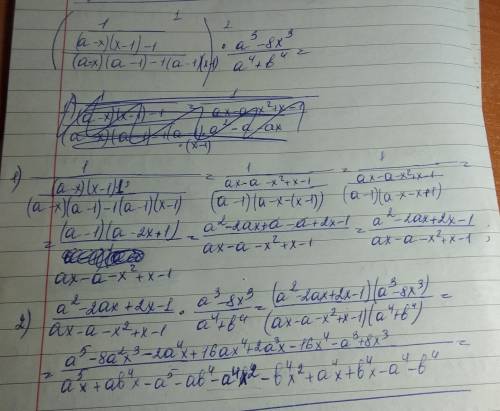 1 2
( 1 / ( ((a-x)(x-1)-1) / ((a-x)(a-1)-1(a-1)(x-1)) ) ) · (a³-8x³)/(a⁴+b⁴) =
1) 1 / ( ((a-x)(x-1)1) / ((a-x)(a-1)-1(a-1)(x-1)) ) = 1 / ( (ax-a-x²+x-1) / ((a-1)(a-x-(x-1)) ) = 1 / ( (ax-a-x²+x-1) / ((a-1)(a-x-x+1)) ) =
= ((a-1)(a-2x+1)) / (ax-a-x²+x-1) = (a²-2ax+a-a+2x-1) / (ax-a-x²+x-1) = (a²-2ax+2x-1) / (ax-a-x²+x-1) ;
2) (a²-2ax+2x-1) / (ax-a-x²+x-1) · (a³-8x³) / (a⁴+b⁴) = ((a²-2ax+2x-1)(a³-8x³)) / ((ax-a-x²+x-1)(a⁴+b⁴)) =
= (a⁵-8a²x³-2a⁴x+16ax⁴+2a³x-16x⁴-a³+8x³) / (a⁵x+ab⁴x-a⁵-ab⁴-a⁴x²-b⁴x²+a⁴x+b⁴x-a⁴-b⁴)